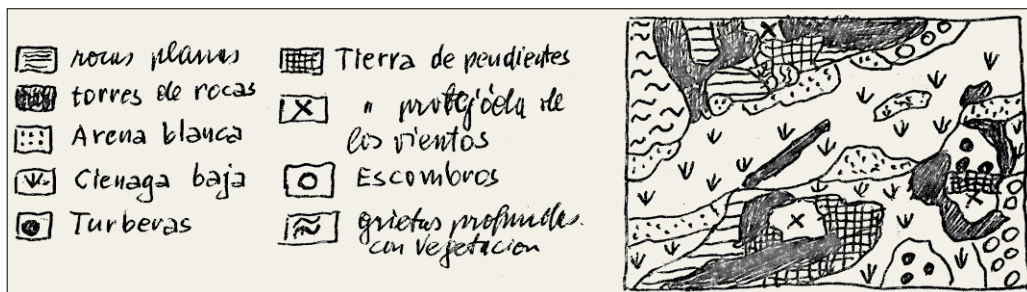 rocas planas
torres de rocas
Arena blanca
Cienaga baja
Turberas
Tierra de pendientes
" protegida de
los vientos
Escombros
grietas profundas.
con vegetacion